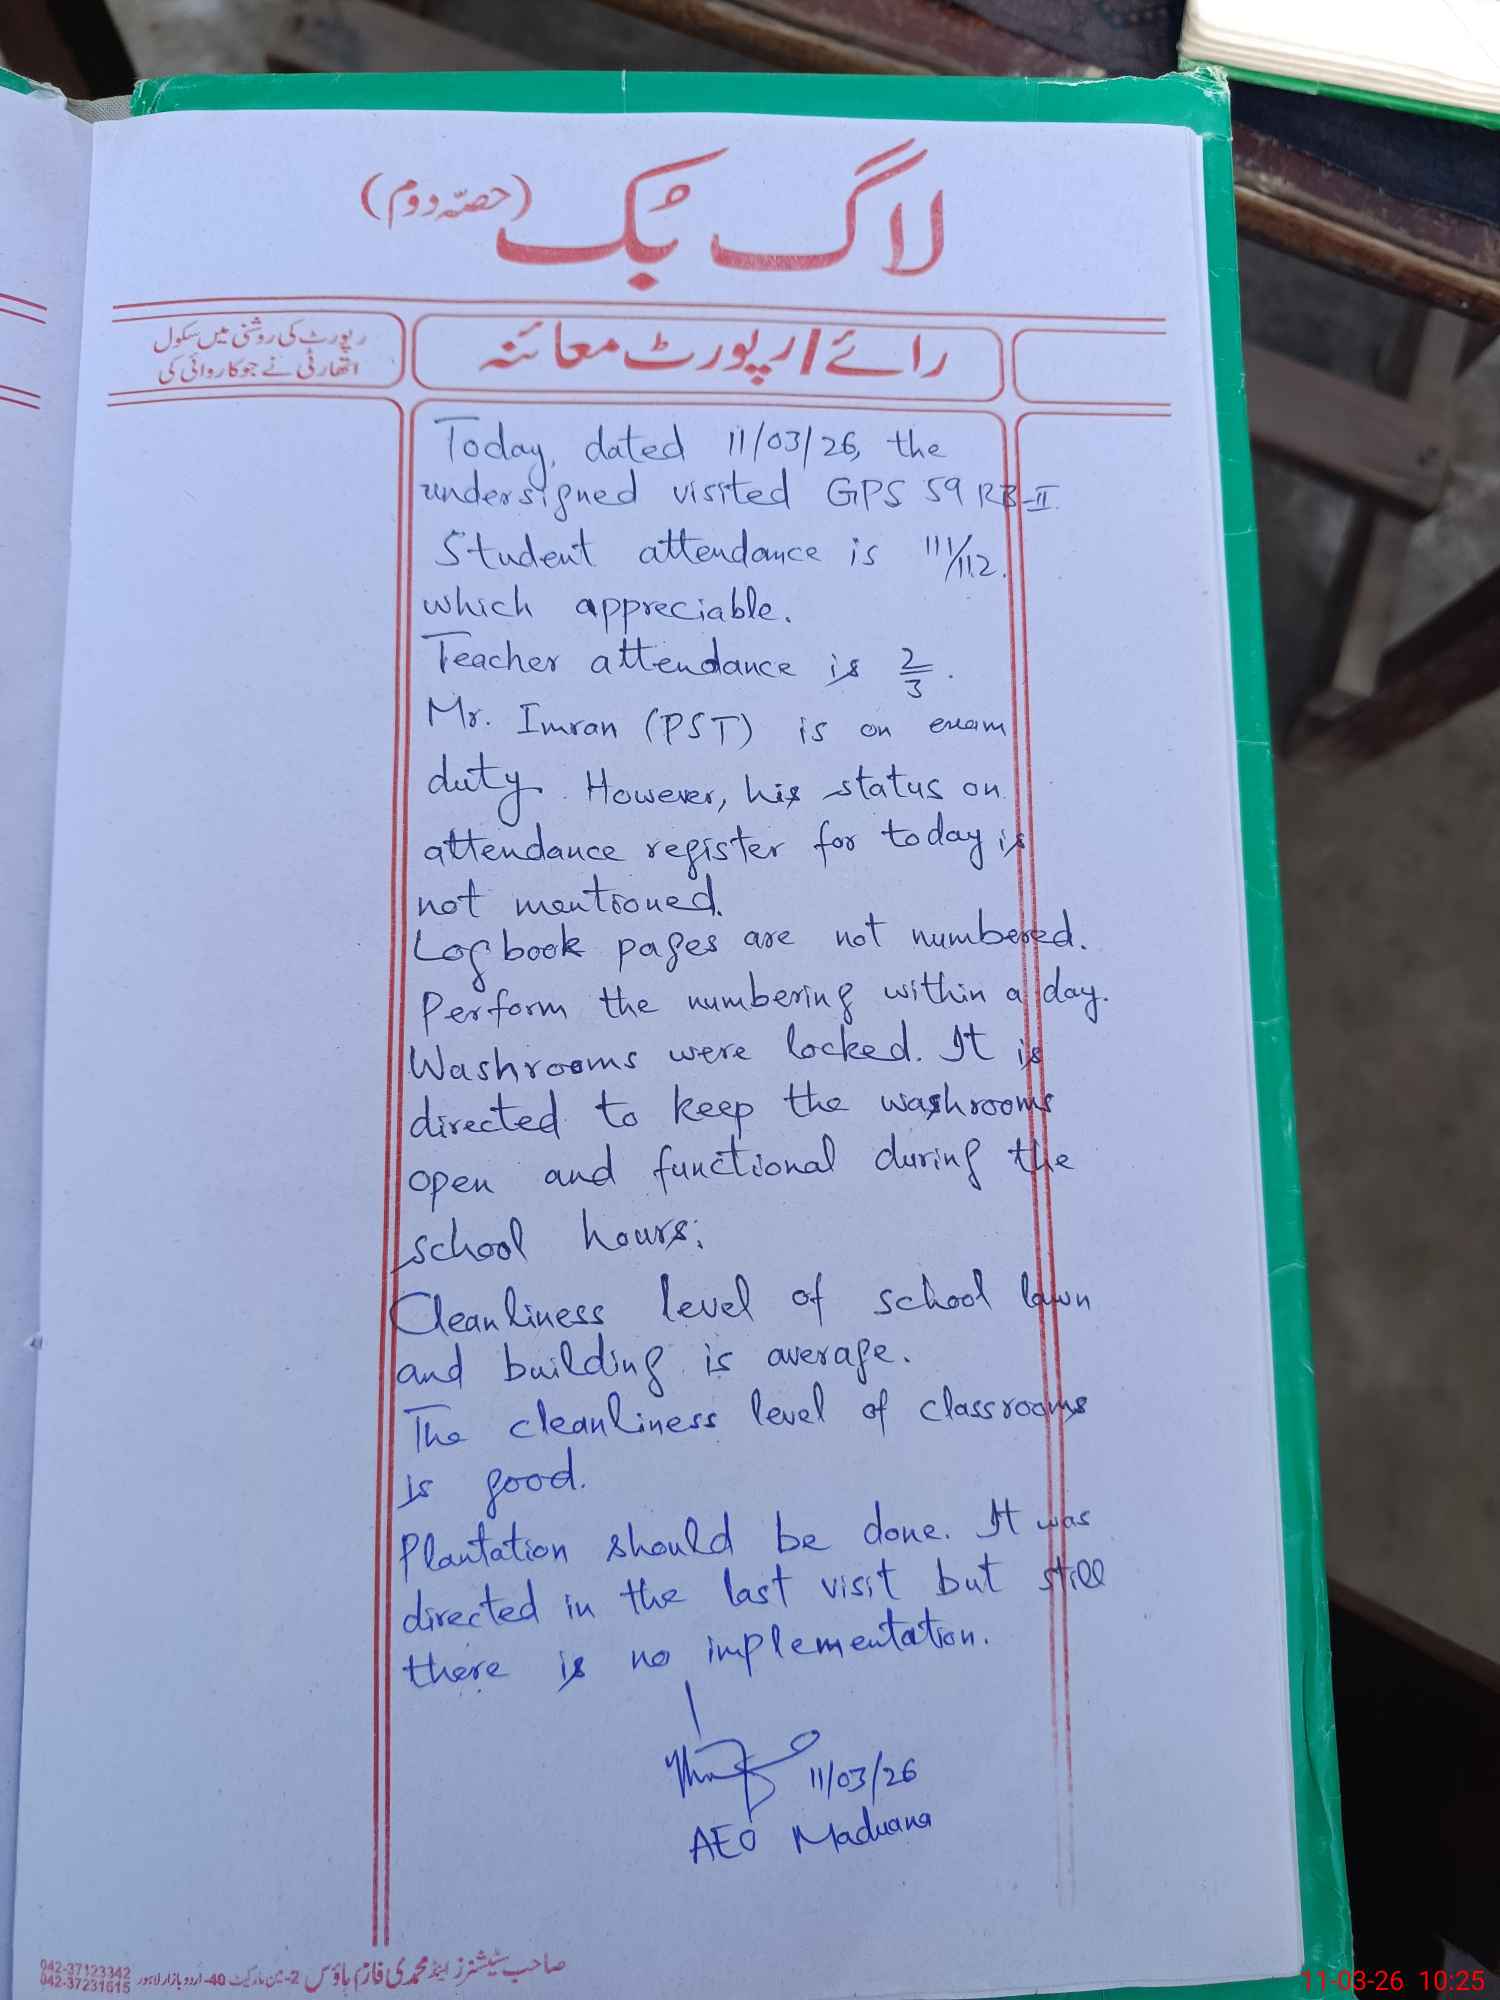 لاگ بک (حصّہ دوم)
رپورٹ کی روشنی میں سکول
اتھارٹی نے جو کاروائی کی
رائے/رپورٹ معائنہ
Today, dated 11/03/26, the
undersigned visited GPS 59 RB-II.
Student attendance is 111/112.
which appreciable.
Teacher attendance is 2/3.
Mr. Imran (PST) is on exam
duty. However, his status on
attendance register for today is
not mentioned.
Logbook pages are not numbered.
Perform the numbering within a day.
Washrooms were locked. It is
directed to keep the washrooms
open and functional during the
school hours.
Cleanliness level of school lawn
and building is average.
The cleanliness level of classrooms
is good.
Plantation should be done. It was
directed in the last visit but still
there is no implementation.
11/03/26
AEO Maduana
صاحب سٹیشنرز اینڈ محمدی فارم ہاؤس 2-مین مارکیٹ 40-اردو بازار لاہور
042-37123342
042-37231615
11-03-26 10:25